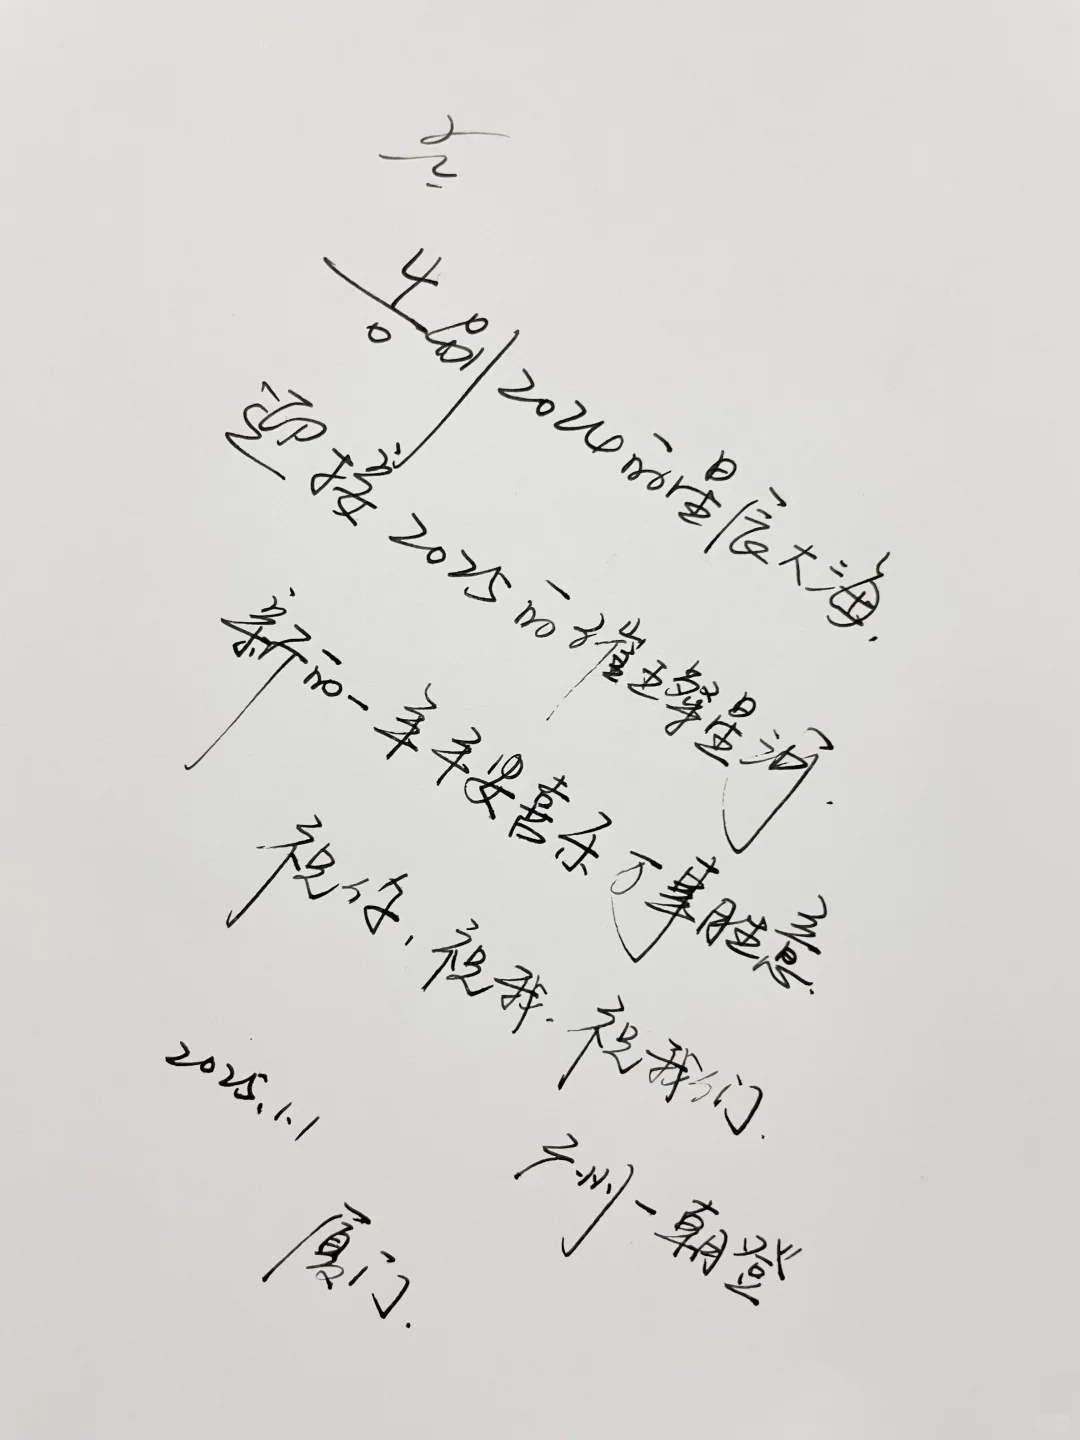 告别2024的星辰大海.
迎接2025的璀璨星河.
新的一年平安喜乐万事胜意.
祝你,祝我.祝我们.
2025.1.1
广州-朝登
厦门.